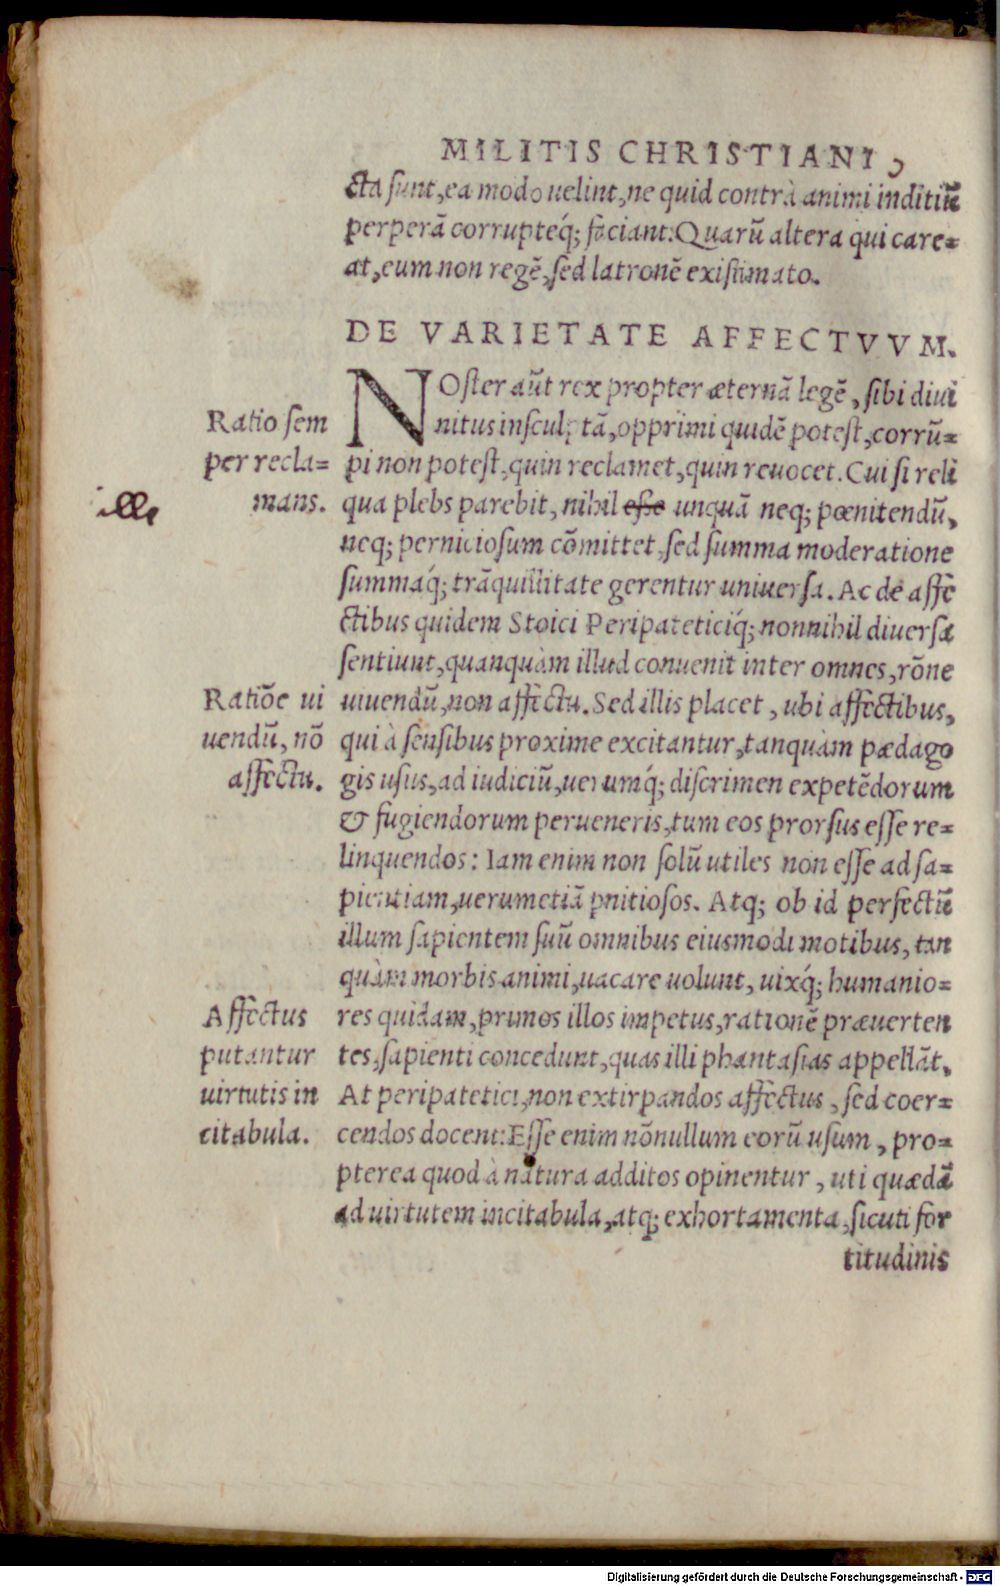 MILITIS CHRISTIANI
cta sunt, ea modo uelint, ne quid contrà animi inditiũ
perperã corrupteq́; faciant: Quarũ altera qui care=
at, eum non regẽ, sed latronẽ existimato.
DE VARIETATE AFFECTVVM.
NOster aũt rex propter æternã legẽ, sibi diui
nitus insculptã, opprimi quidẽ potest, corrũ=
pi non potest, quin reclamet, quin reuocet. Cui si reli
qua plebs parebit, nihil esse unquã neq; pœnitendũ,
neq; perniciosum cõmittet, sed summa moderatione
summaq́; trãquillitate gerentur uniuersa. Ac de affe
ctibus quidem Stoici Peripateticiq́; nonnihil diuersæ
sentiunt, quanquàm illud conuenit inter omnes, rõne
uiuendũ, non affectu. Sed illis placet, ubi affectibus,
qui à sensibus proxime excitantur, tanquàm pædago
gis usus, ad iudiciũ, uerumq́; discrimen expetẽdorum
& fugiendorum perueneris, tum eos prorsus esse re=
linquendos: Iam enim non solũ utiles non esse ad sa=
pientiam, uerumetiã pnitiosos. Atq; ob id perfectũ
illum sapientem suũ omnibus eiusmodi motibus, tan
quàm morbis animi, uacare uolunt, uixq́; humanio=
res quidam, primos illos impetus, rationẽ præuerten
tes, sapienti concedunt, quas illi phantasias appellãt.
At peripatetici, non extirpandos affectus, sed coer=
cendos docent: Esse enim nõnullum eorũ usum, pro=
pterea quod à natura additos opinentur, uti quædã
ad uirtutem incitabula, atq; exhortamenta, sicuti for
titudinis
Ratio sem
per recla=
mans.
ille
Ratiõe ui
uendũ, nõ
affectu.
Affectus
putantur
uirtutis in
citabula.
Digitalisierung gefördert durch die Deutsche Forschungsgemeinschaft - DFG